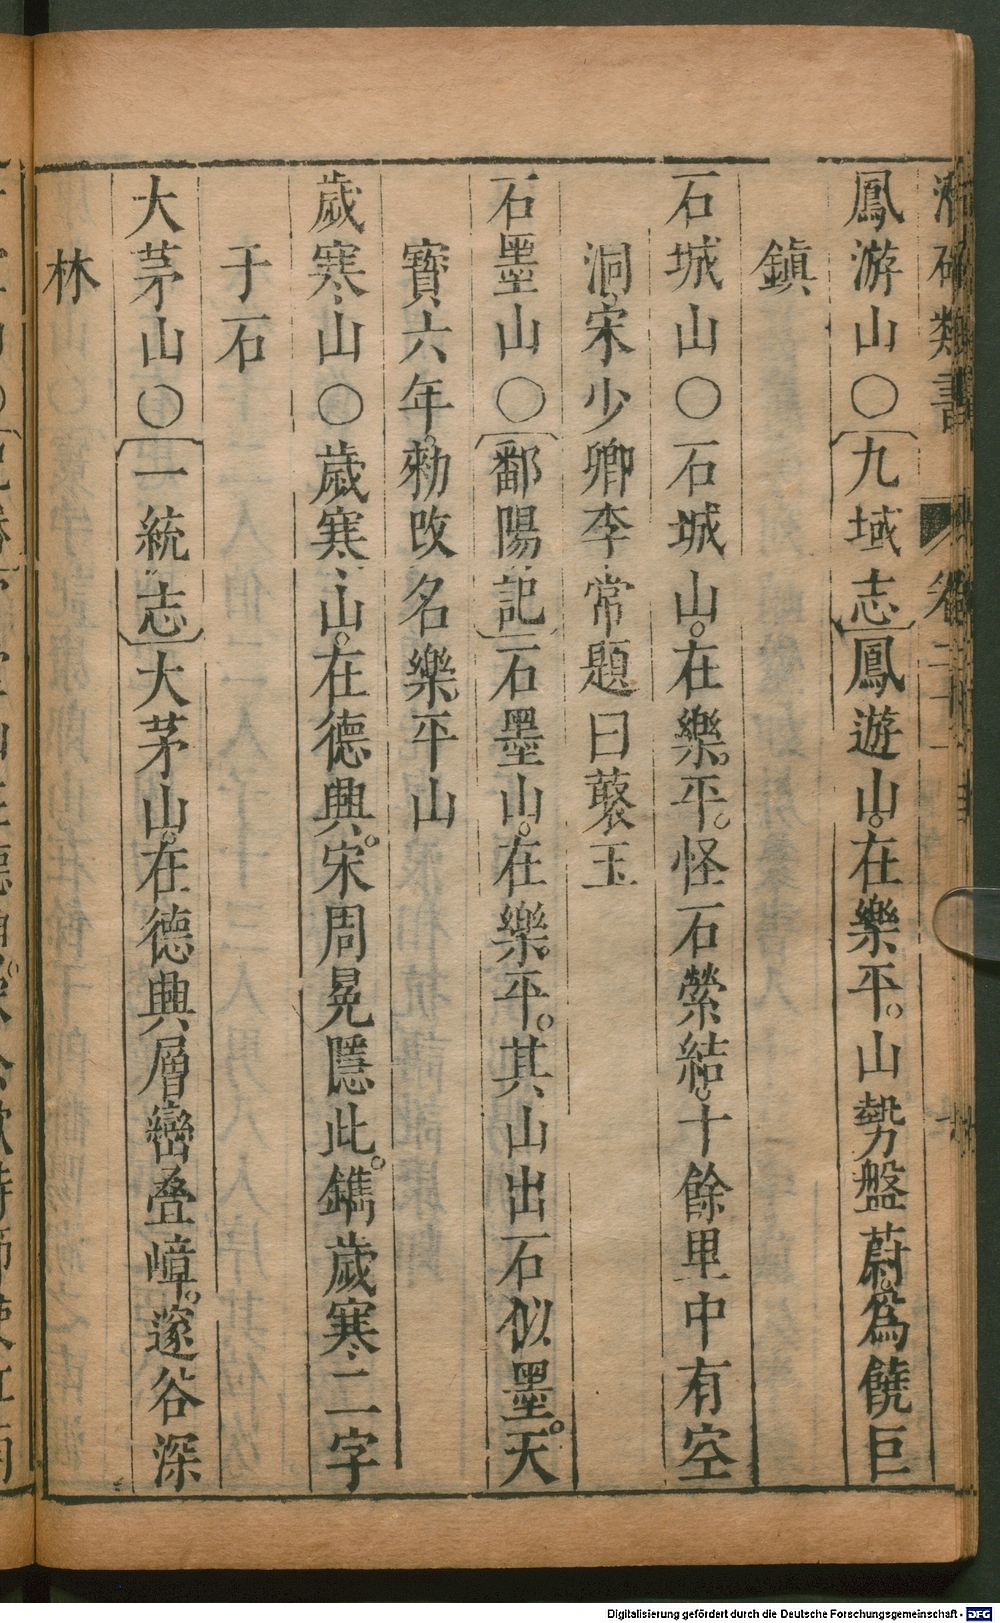 類書 卷二十一
鳳游山○〔九域志〕鳳遊山。在樂平。山勢盤蔚。爲饒巨
鎮
石城山○石城山。在樂平。怪石縈結。十餘里中有空
洞宋少卿李常題曰蔱玉
石墨山○〔鄱陽記〕石墨山。在樂平。其山出石似墨。天
寳六年。勑改名樂平山
歲寒山○歲寒山。在德興。宋周晃隱此。鐫歲寒二字
于石
大茅山○〔一統志〕大茅山。在德興層巒叠嶂。邃谷深
林
Digitalisierung gefördert durch die Deutsche Forschungsgemeinschaft - DFG